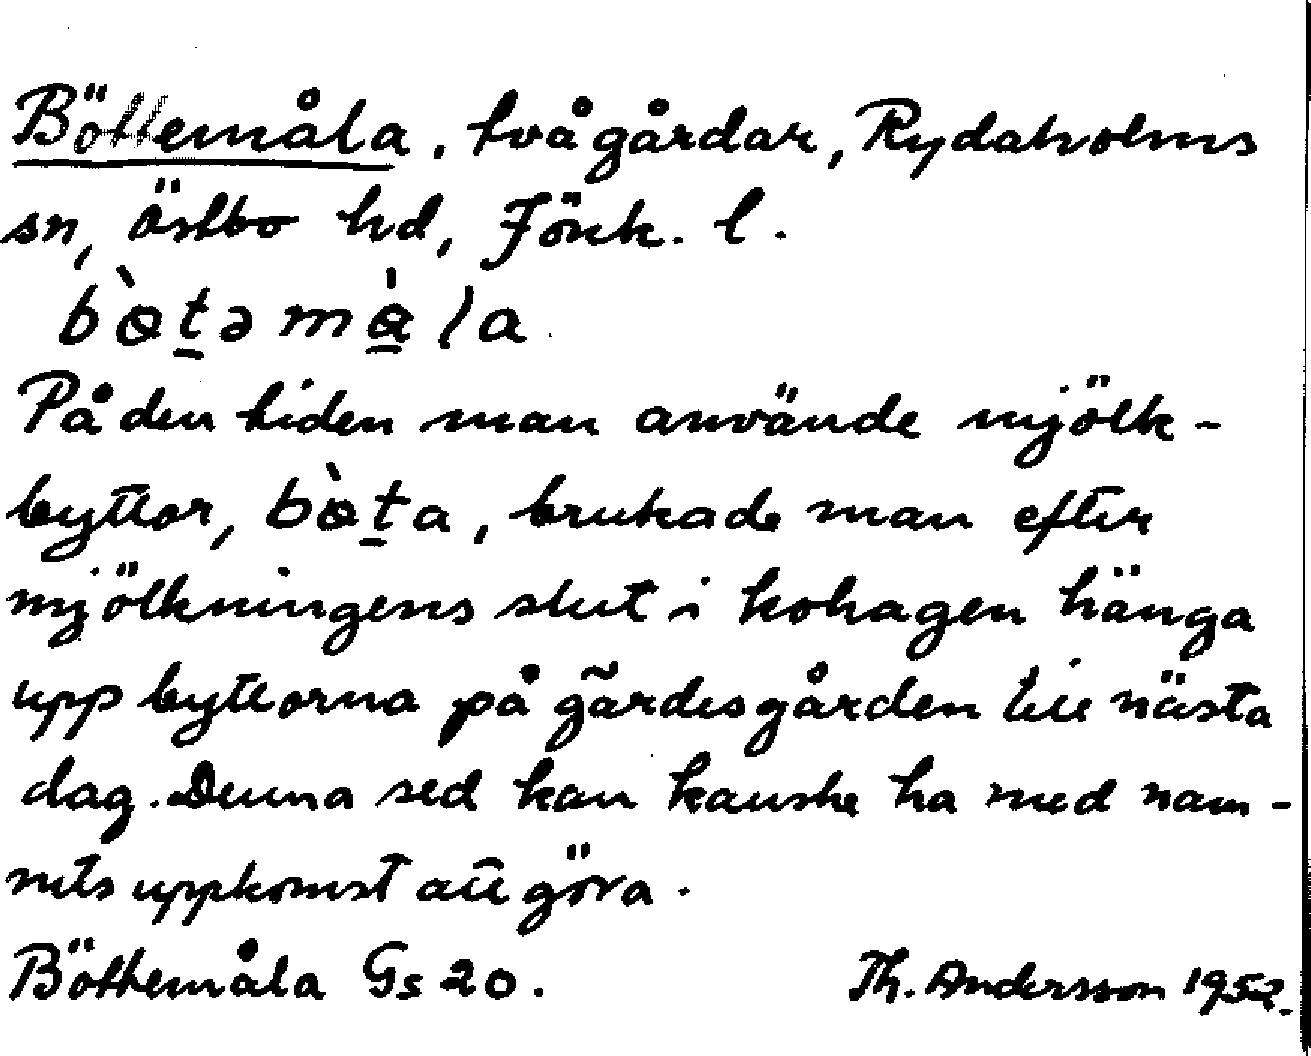 Böttemåla, två gårdar, Rydaholms
sn, Östbo hd, Jönk. l.
bø̀t̠əmɑ̠̀la.
På den tiden man använde mjölk-
byttor, bø̀t̠a, brukade man efter
mjölkningens slut i kohagen hänga
upp byttorna på gärdesgården till nästa
dag. Denna sed kan kanske ha med nam-
nets uppkomst att göra.
Böttemåla Gs 20. Th. Andersson 1952.